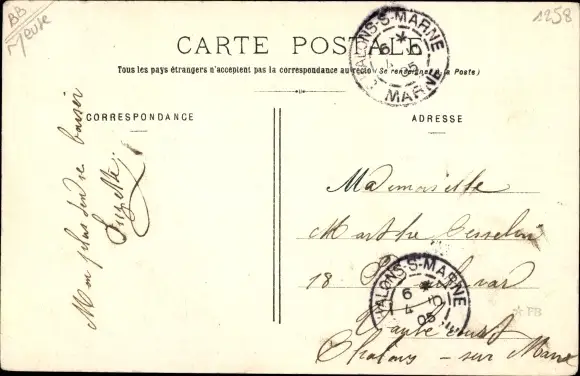 BB
Meuse
1258
CARTE POSTALE
Tous les pays étrangers n'acceptent pas la correspondance au recto (Se renseigner à la Poste)
CHALONS-S-MARNE
6
4
05
MARNE
CORRESPONDANCE
ADRESSE
Mon plus tendre baiser
Suzette
Mademoiselle
Marthe Cesselin
18 Boulevard
Vaubécourt
Chalons - sur Marne
CHALONS-S-MARNE
6
4
05
FB